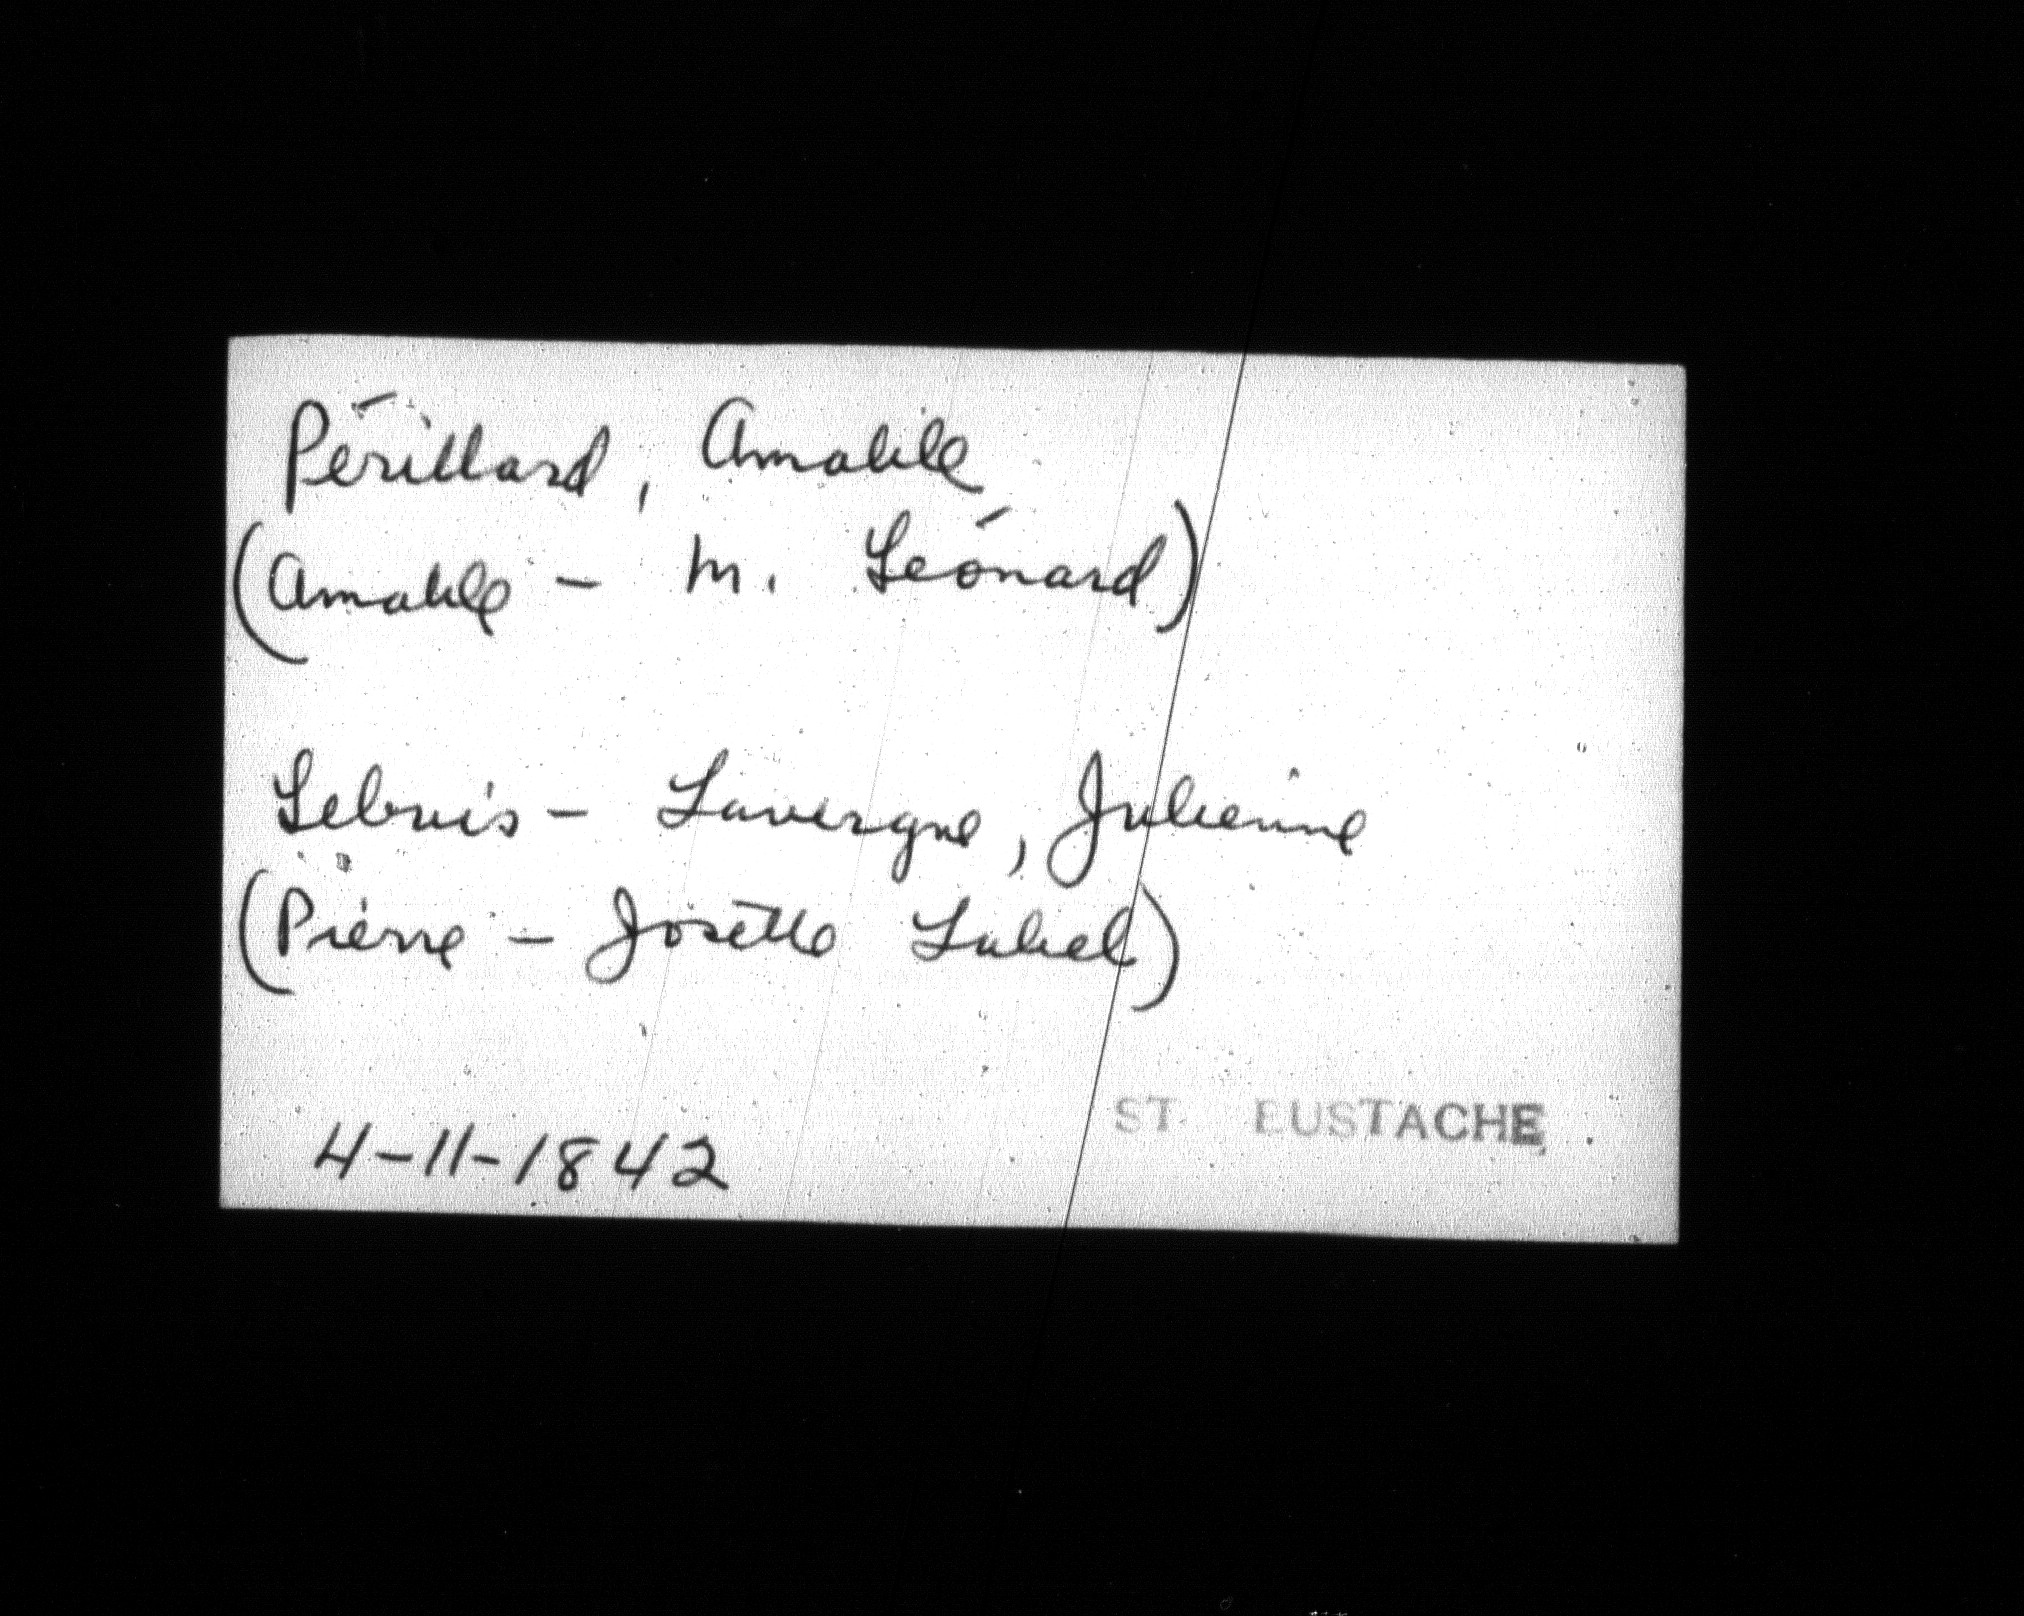 Périllard, Amable
(Amable - M. Léonard)
Lebuis - Lavergne, Julienne
(Pierre - Josette Labelle)
4-11-1842
ST EUSTACHE